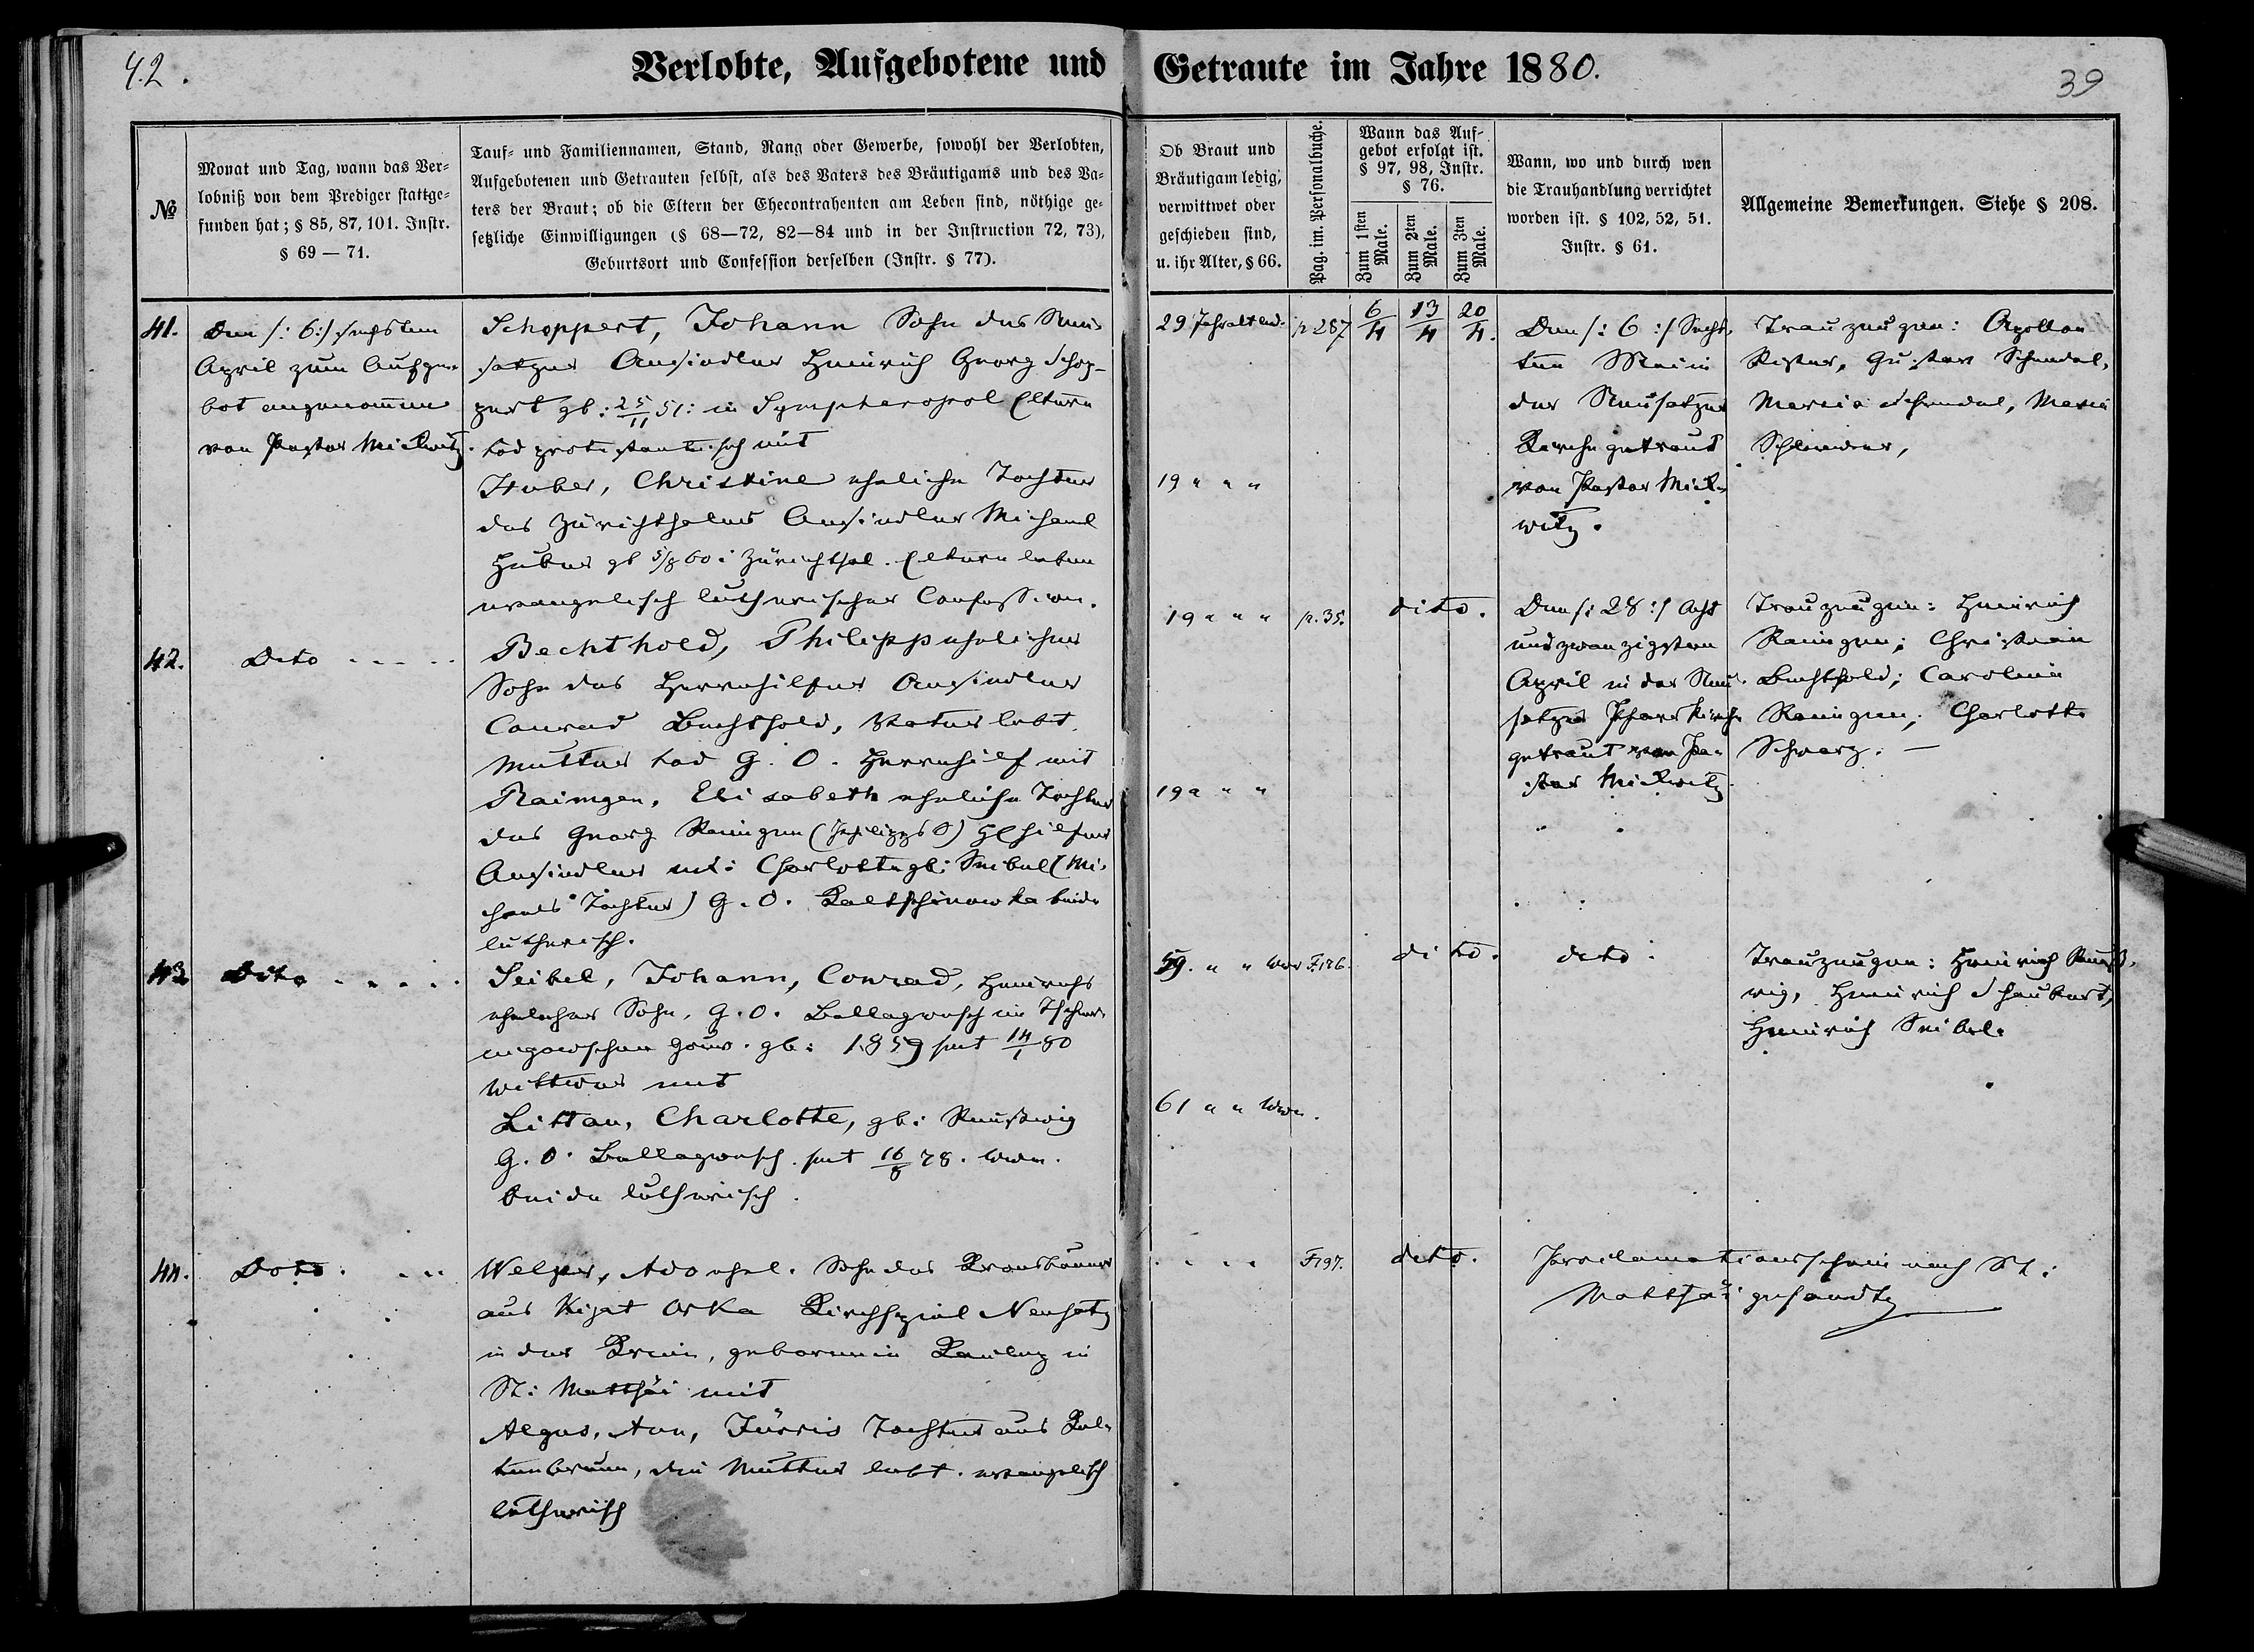 42.
Verlobte, Aufgebotene und Getraute im Jahre 1880.
39
№
Monat und Tag, wann das Ver-
lobniß von dem Prediger stattge-
funden hat; § 85, 87, 101. Instr.
§ 69 — 71.
Tauf- und Familiennamen, Stand, Rang oder Gewerbe, sowohl der Verlobten,
Aufgebotenen und Getrauten selbst, als des Vaters des Bräutigams und des Va-
ters der Braut; ob die Eltern der Ehecontrahenten am Leben sind, nöthige ge-
setzliche Einwilligungen (§ 68—72, 82—84 und in der Instruction 72, 73),
Geburtsort und Confession derselben (Instr. § 77).
Ob Braut und
Bräutigam ledig,
verwittwet oder
geschieden sind,
u. ihr Alter, § 66.
Pag. im. Personalbuche.
Wann das Auf-
gebot erfolgt ist.
§ 97, 98, Instr.
§ 76.
Zum 1sten Male.
Zum 2ten Male.
Zum 3ten Male.
Wann, wo und durch wen
die Trauhandlung verrichtet
worden ist. § 102, 52, 51.
Instr. § 61.
Allgemeine Bemerkungen. Siehe § 208.
41.
Den /: 6:/ sechsten
April zum Aufge-
bot angenommen
von Pastor Mickwitz.
Schoppert, Johann Sohn des Neu-
satzer Ansiedler Heinrich Georg Schop-
pert gb: 25/11 51: in Sympheropol Eltern
tod protestantisch mit
Huber, Christine eheliche Tochter
des Zürichthaler Ansiedler Michael
Huber gb 5/8 60 i Zürichthal. Eltern leben
evangelisch lutherischer Confession.
29 Jahr alt led.
19 " " "
p 287
6/4
13/4
20/4.
Den /: 6 :/ Sechs-
ten Mai in
der Neusatzer
Kirche getraut
von Pastor Mick-
witz.
Trauzeugen: Apollon
Gustav Schendel,
Maria Schendel, Maria
42.
Dito
Bechthold, Philipp ehelicher
Sohn des Herrnhilfer Ansiedler
Conrad Bechthold, Vater lebt.
Mutter tod G. O. Herrnhilf mit
Raimgen, Elisabeth eheliche Tochter
des Georg Reimgen (Philipps S)
Ansiedler mit: Charlotte gb: Seibel (Mi-
chaels Tochter) G. O. Kaltschinowka beide
lutherisch.
19 " " "
19 " " "
p. 35.
dito.
Den /: 28 :/ Acht
und zwanzigsten
April in der Neu-
satzer Pfarrkirche
getraut von Pa-
stor Mickwitz
Trauzeugen: Heinrich
Reimgen; Christian
Bechthold; Carolina
Reimgen; Charlotte
Schwarz. —
43
Dito
Seibel, Johann, Conrad, Heinrichs
ehelicher Sohn, G. O. Belagwesch im Tscher-
nigowschen Gouv. gb: 1859 seit 14/1 80
Wittwer mit
Littau, Charlotte, gb:
G. O. Belagwesch seit 16/8 78. Wwe.
beide lutherisch.
59. " " Wwr
61 " " Wwe.
F. 176.
dito.
dito.
Trauzeugen: Heinrich
Heinrich Schaubert,
Heinrich Seibel.
44.
Dito.
Ado ehel. Sohn des
aus Kijat Orka Kirchspiel Neusatz
in der Krim, geboren in
St: Matthäi mit
Algus, Ann, Jürris Tochter aus Kal-
tenbrunn, die Mutter lebt. evangelisch
lutherisch
F. 197.
dito.
Proclamationsschein nach St:
Matthäi gesandt